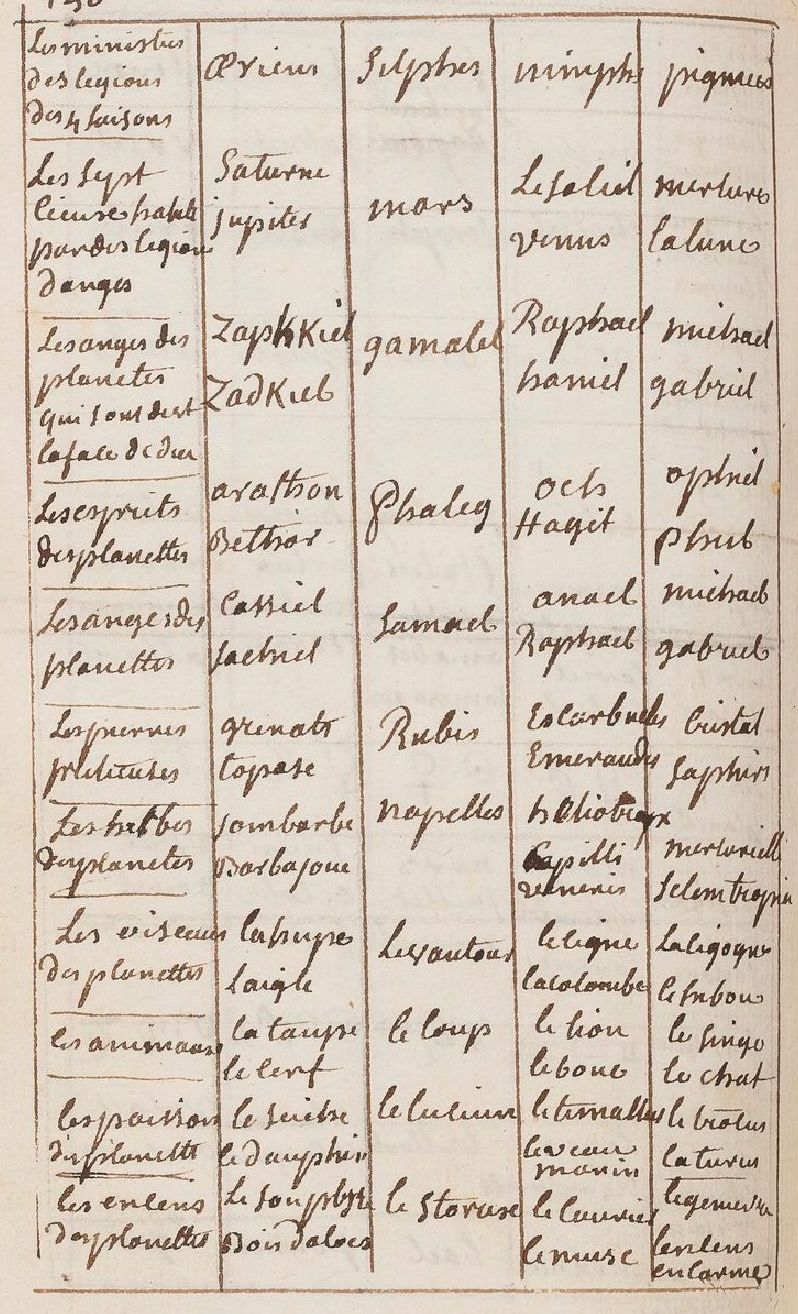 Les ministres
des legions
des 4 saisons
æriens
Silphes
nimphs
pigmees
Les sept
lieuse habité
par des legion
danges
Saturne
jupiter
mars
Le soleil
venus
merture
la lune
Les anges des
planetes
qui sont devt
la face de dieu
ZaphKKiel
ZadKiel
gamalel
Raphael
haniel
michael
gabriel
Les esprits
des planettes
arathron
Bethor
Phaleg
och
Hagit
ophiel
phul
Les anges des
planettes
Cassiel
Sachiel
Samael
anael
Raphael
michael
gabriel
Les pierres
pretieuses
grenats
topase
Rubis
Escarbucles
Emeraudes
Cristal
Saphirs
Les herbes
des planetes
Jombarbe
Barbajoue
napelles
heliotrope
Capilli
veneris
mercurielle
Selemtropia
Les oiseaux
des planettes
la hupe
laigle
Le vautour
le cigne
la colombe
La cigogne
le hibou
les animaux
la taupe
le cerf
le loup
le lion
le bouc
le singe
le chat
les poissons
des planett
le seiche
le dauphin
le lucium
le timallus
le veau
marin
le trocus
les encens
des planettes
Le souphre
Bois daloes
le Storax
le laurier
le musc
le genievre
lencens
en larme